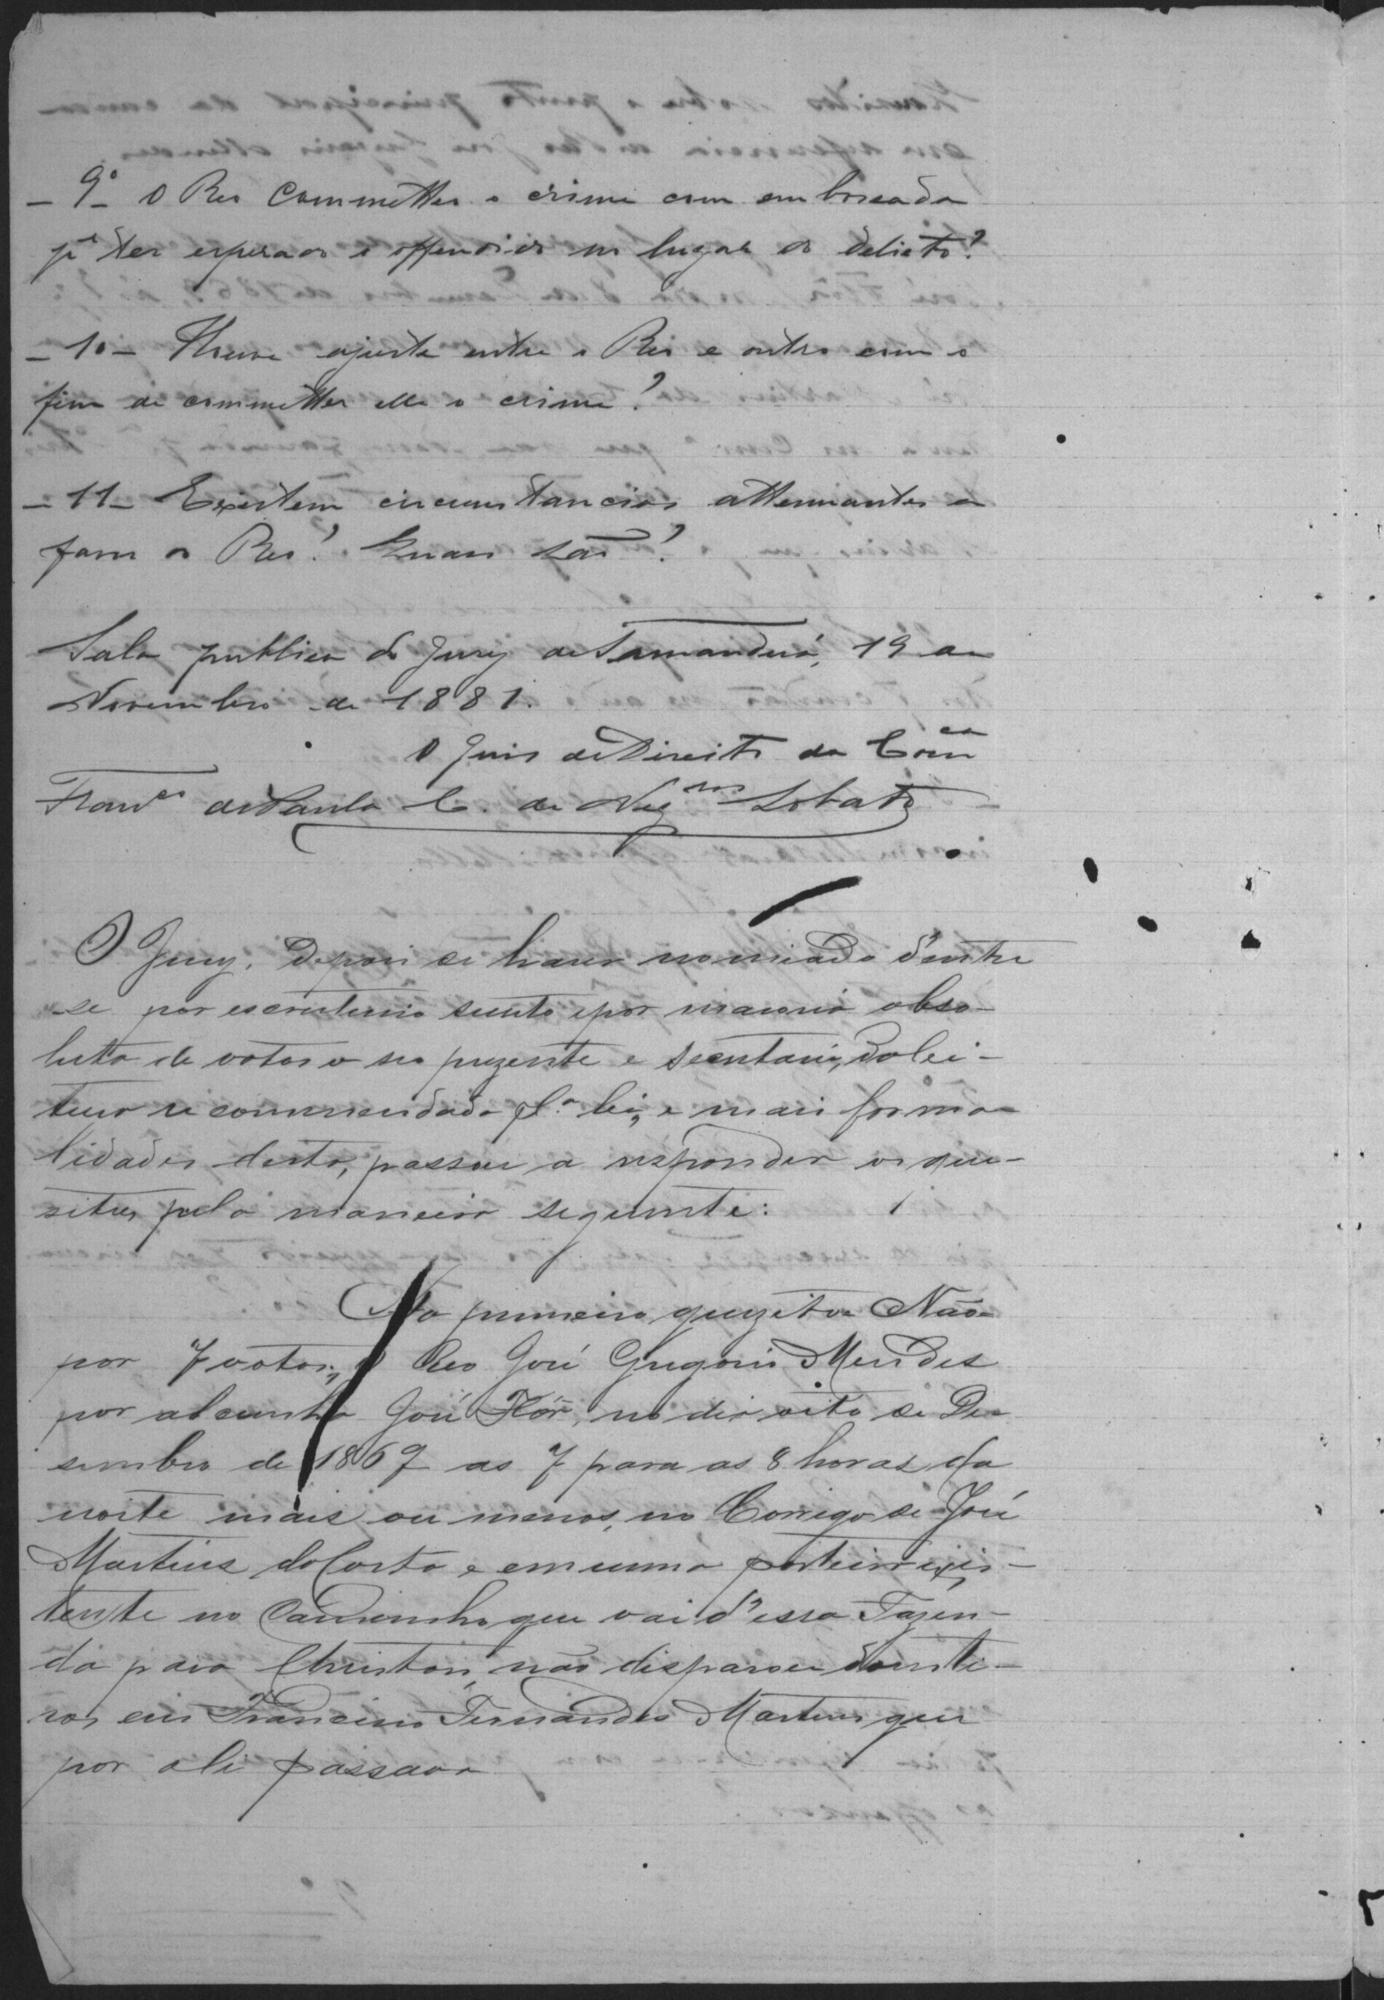 – 9º – O Reo Commetteo o crime com emboscada
pr ter esperado o offendido no lugar do delicto?
– 10 – Houve ajuste entre o Reo e outro com o
fim de commetter elle o crime?
– 11 – Existem circumstancias attenuantes a
favor do Reo? Quaes são?
Sala publica do Jury de Tamanduá, 19 de
Novembro de 1881.
O Juis de Direito da Comca
Franco de Paula C. de Negros Lobato
O Jury, depois de haver nomeado d'entre
se por escrutinio secreto e por maioria abso-
luta de votos o seo prezente e secretario, da lei-
tura recommendada pla lei, e mais forma-
lidades desta, passou a responder os que-
sitos pela maneira seguinte:
Ao primeiro quezito = Não =
por 7 votos; O Reo José Gregorio Mendes
por alcunha José Flôr, no dia oito de De-
sembro de 1869 as 7 para as 8 horas da
noite mais ou menos, no Corrego de José
Martins da Costa e em uma porteira exis-
tente no Caminho que vai d'essa Fazen-
da para Christais, não disparou dous ti-
ros em Francisco Fernandes Martins que
por ali passava